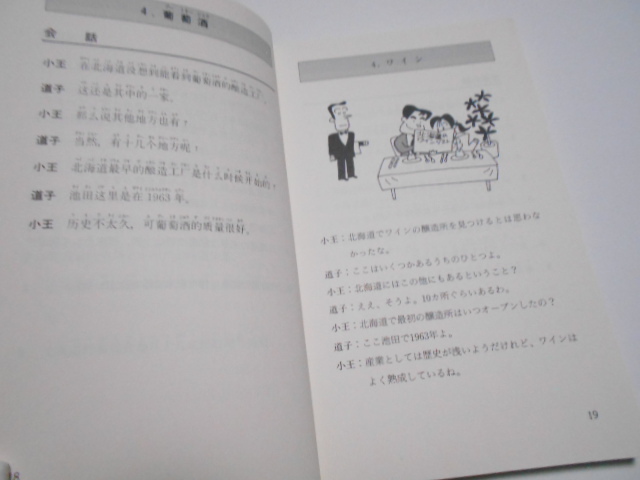 4. 葡萄酒
会 話
小王 在北海道没想到能看到葡萄酒的酿造工厂。
道子 这还是其中的一家。
小王 那么说其他地方也有？
道子 当然，有十几个地方呢。
小王 北海道最早的酿造工厂是什么时候开始的？
道子 池田这里是在1963年。
小王 历史不太久，可葡萄酒的质量很好。
8
4. ワイン
小王：北海道でワインの醸造所を見つけるとは思わな
かったな。
道子：ここはいくつかあるうちのひとつよ。
小王：北海道にはこの他にもあるということ？
道子：ええ、そうよ。10カ所ぐらいあるわ。
小王：北海道で最初の醸造所はいつオープンしたの？
道子：ここ池田で1963年よ。
小王：産業としては歴史が浅いようだけれど、ワインは
よく熟成しているね。
19